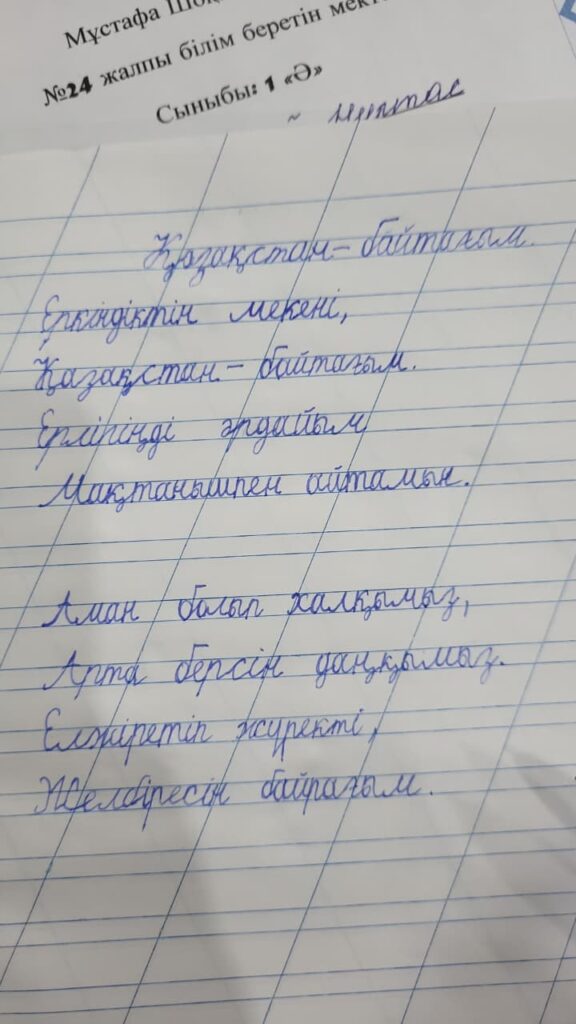 Мұстафа
№24 жалпы білім беретін
Сыныбы: 1 «Ә»
Қазақстан - байтағым.
Еркіндіктін мекені,
Қазақстан - байтағым.
Ерлігіңді әрдайым
Мақтанышпен айтамын.
Аман болып халқымыз,
Арта берсін даңқымыз.
Елжіретіп жүректі,
Желбіресін байрағым.